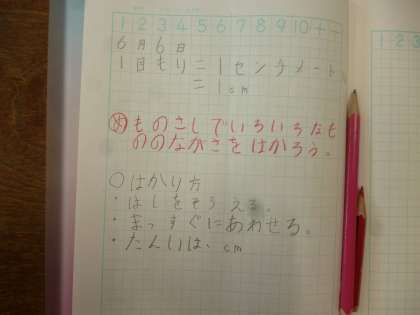 1 2 3 4 5 6 7 8 9 10 + -
6月6日
1目もり=1センチメートル
=1cm
めものさしでいろいろなも
ののながさをはかろう。
○はかり方
・はしをそろえる。
・まっすぐにあわせる。
・たんいは、cm
1 2 3